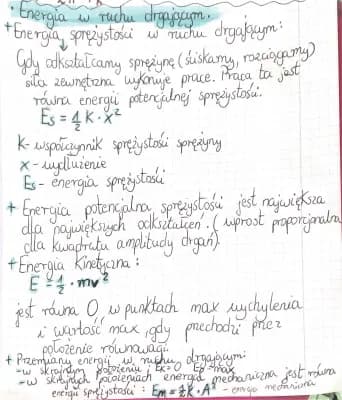 • Energia w ruchu drgającym.
+ Energia sprężystości w ruchu drgającym:
Gdy odkształcamy sprężynę (ściskamy, rozciągamy)
siła zewnętrzna wykonuje prace. Praca ta jest
równa energii potencjalnej sprężystości.
Es = 1/2 K · x²
K - współczynnik sprężystości sprężyny
x - wydłużenie
Es - energia sprężystości
+ Energia potencjalna sprężystości jest największa
dla największych odkształceń. (wprost proporcjonalna
dla kwadratu amplitudy drgań).
+ Energia Kinetyczna:
E = 1/2 · mv²
jest równa 0, w punktach max wychylenia
i wartość max, gdy przechodzi przez
położenie równowagi
+ Przemiany energii w ruchu drgającym:
- w skrajnym położeniu Ek=0 Ep=max
- w skrajnych położeniach energia mechaniczna jest równa
energii sprężystości: Em = 1/2 K · A² - energia mechaniczna